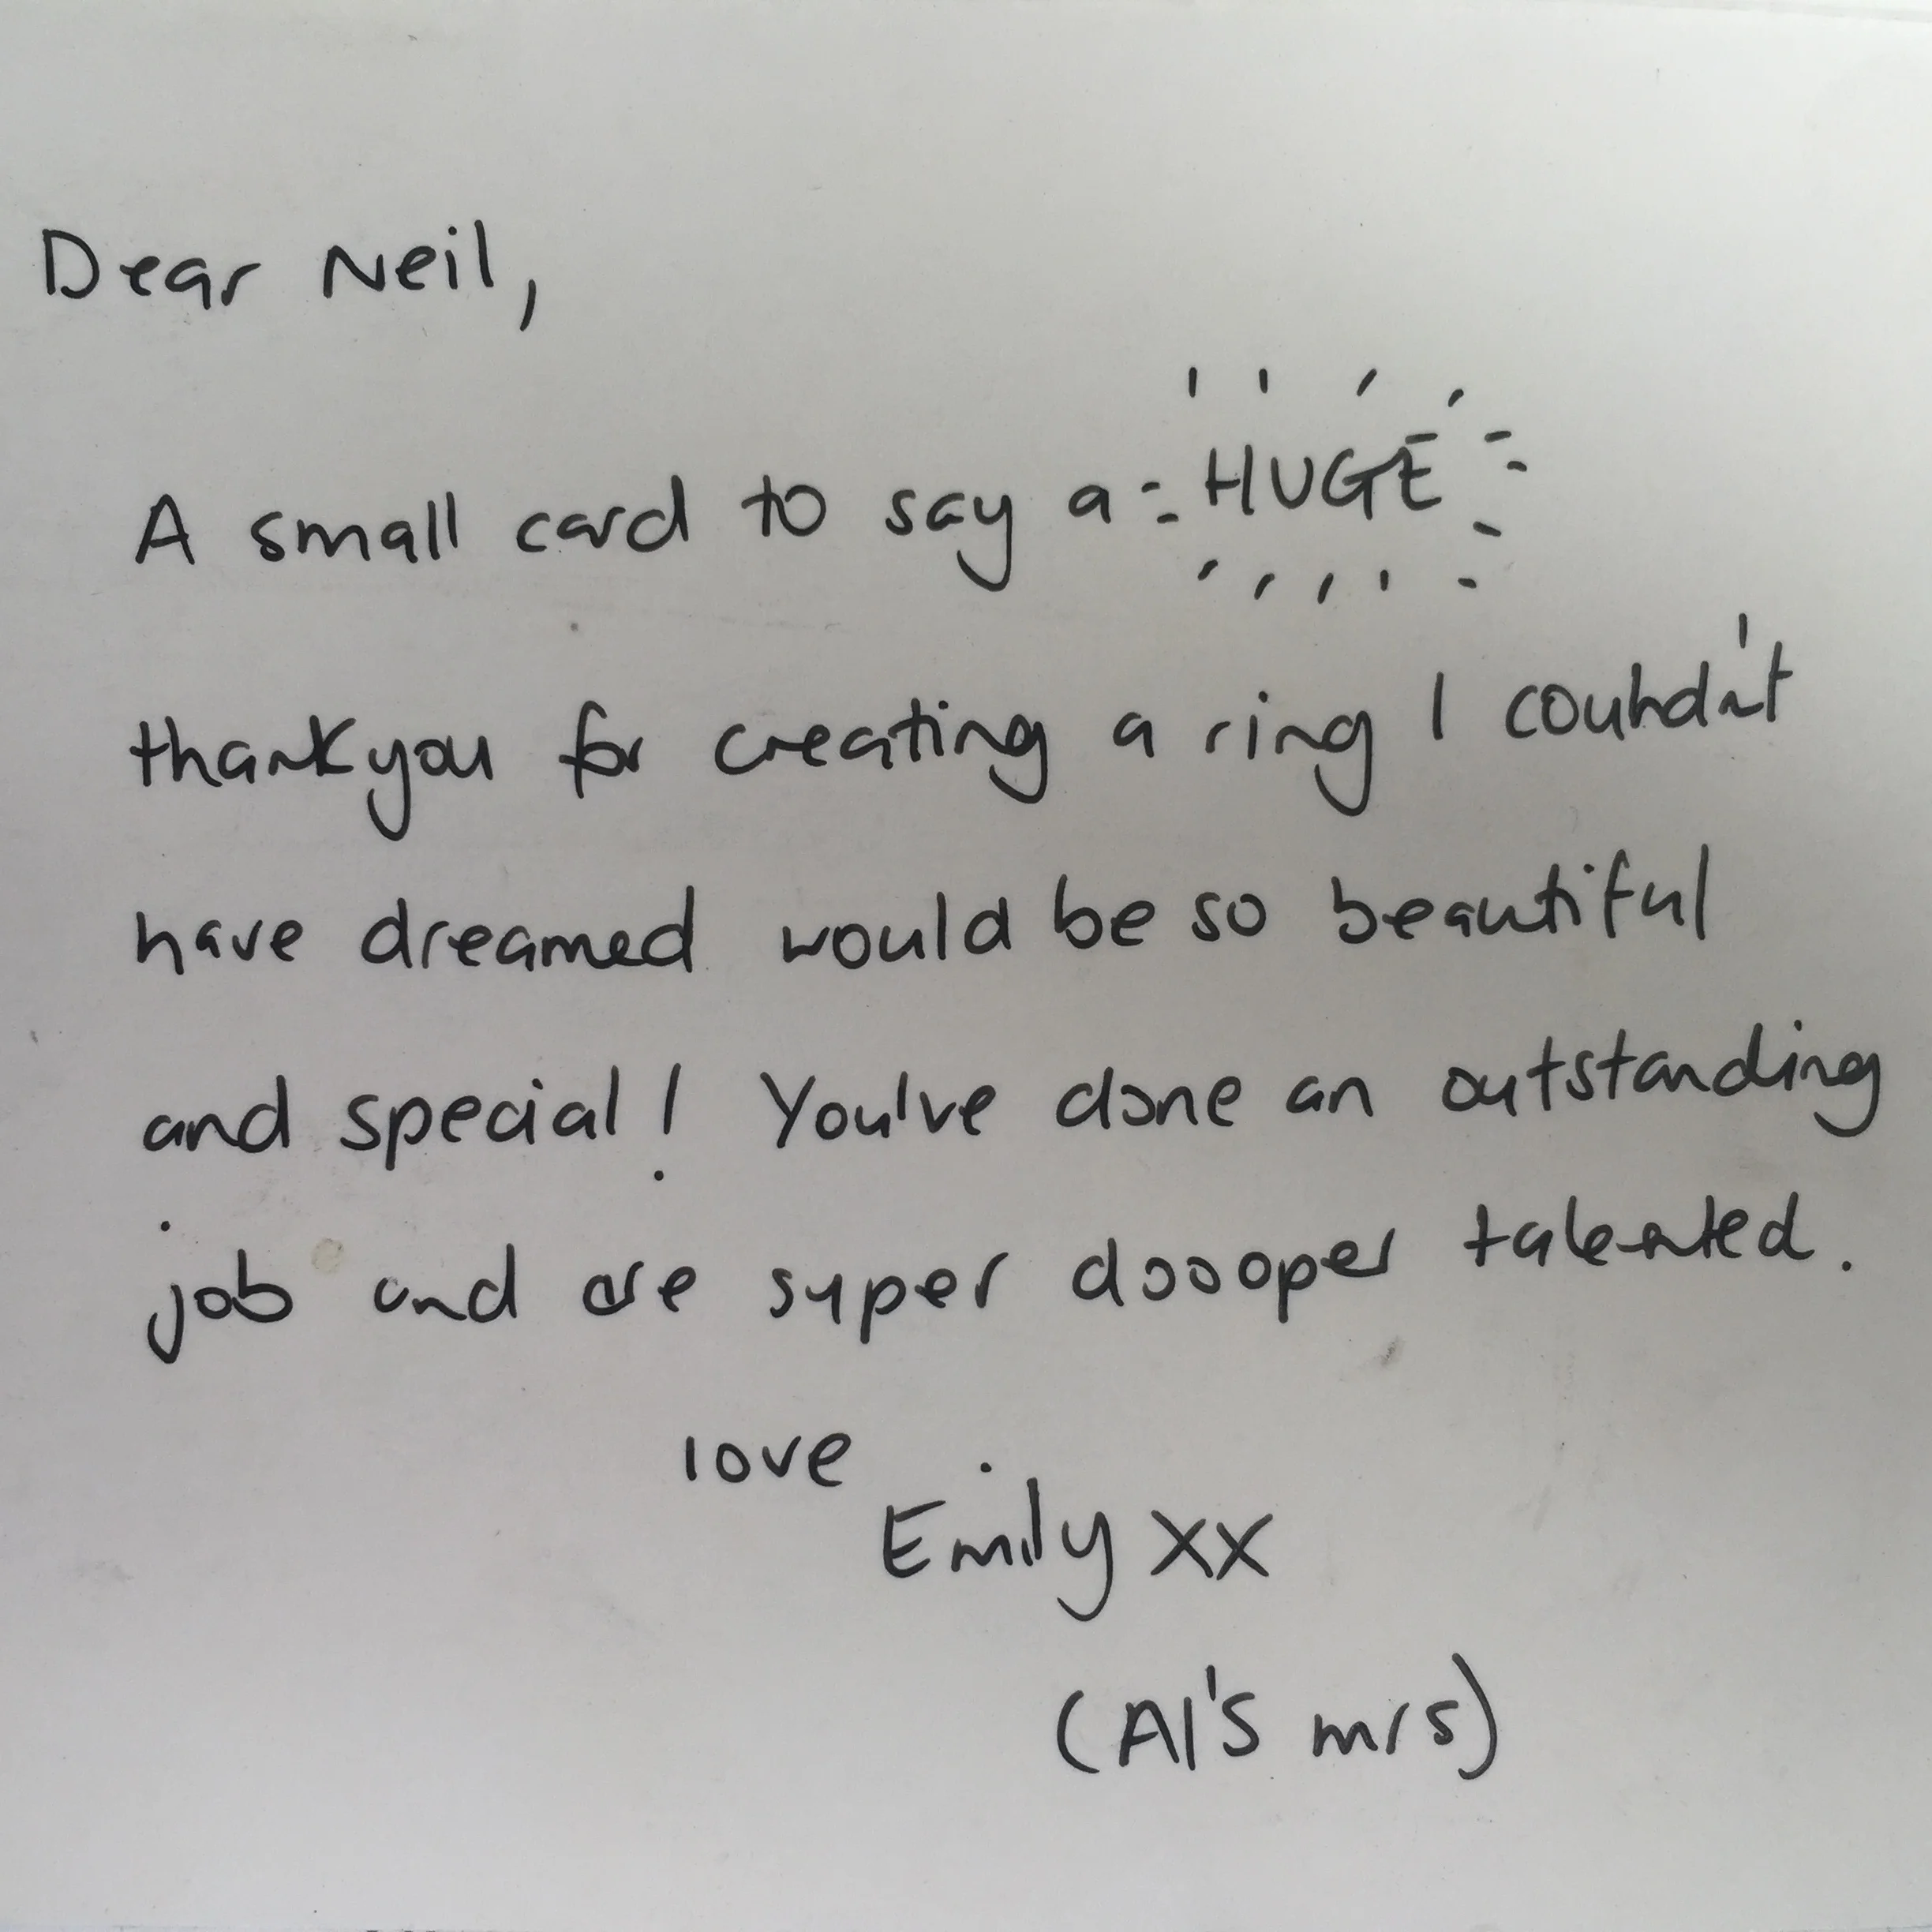 Dear Neil,
A small card to say a HUGE
thankyou for creating a ring I couldn't
have dreamed would be so beautiful
and special! You've done an outstanding
job and are super doooper talented.
love
Emily xx
(Al's mrs)